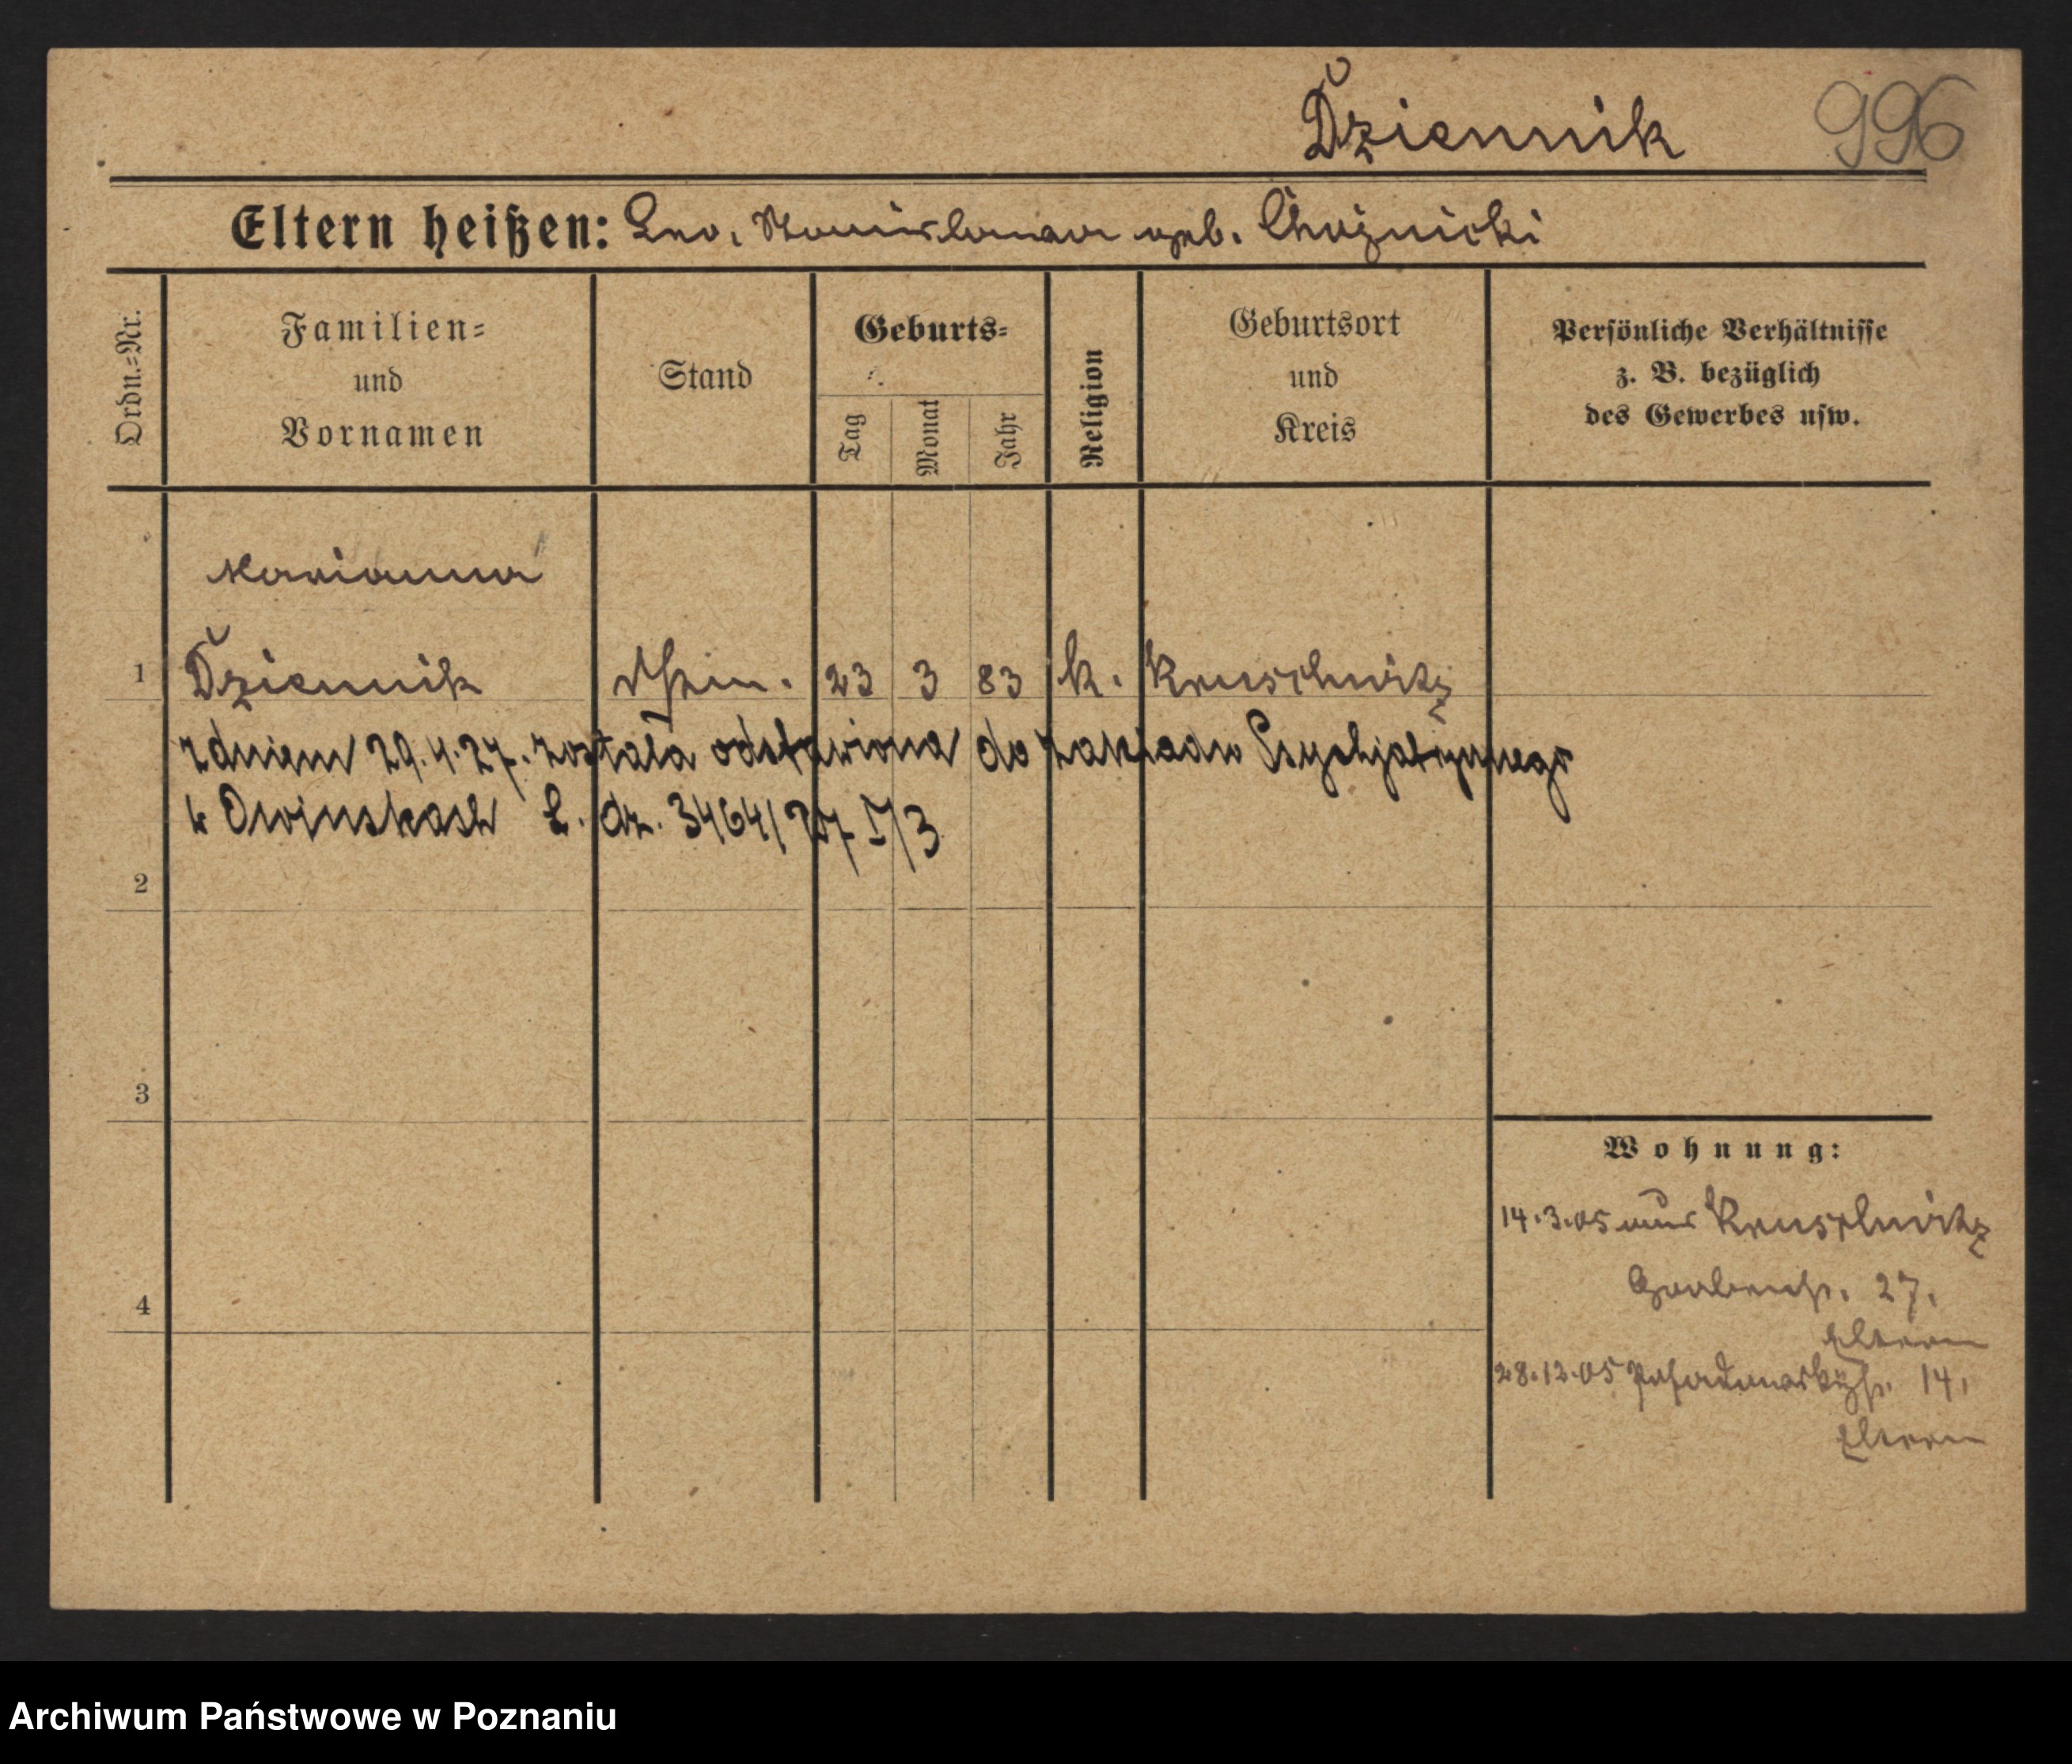 Dziennik 996
Eltern heißen: Leo, Stanislawa geb. Choznicki
Ordn.=Nr.
Familien=
und
Vornamen
Stand
Geburts=
Tag
Monat
Jahr
Religion
Geburtsort
und
Kreis
Persönliche Verhältnisse
z. B. bezüglich
des Gewerbes usw.
Marianna
1 Dziennik 23 3 83 k. Kruschwitz
z dniem 29.4.27. została odstawiona do zakładu Psychjatrycznego
w Owinskach L. dz. 3464/27 I/3
2
3
4
Wohnung:
14.3.05 aus Kruschwitz
Grabenstr. 27.
Eltern
28.12.05 14,
Eltern
Archiwum Państwowe w Poznaniu